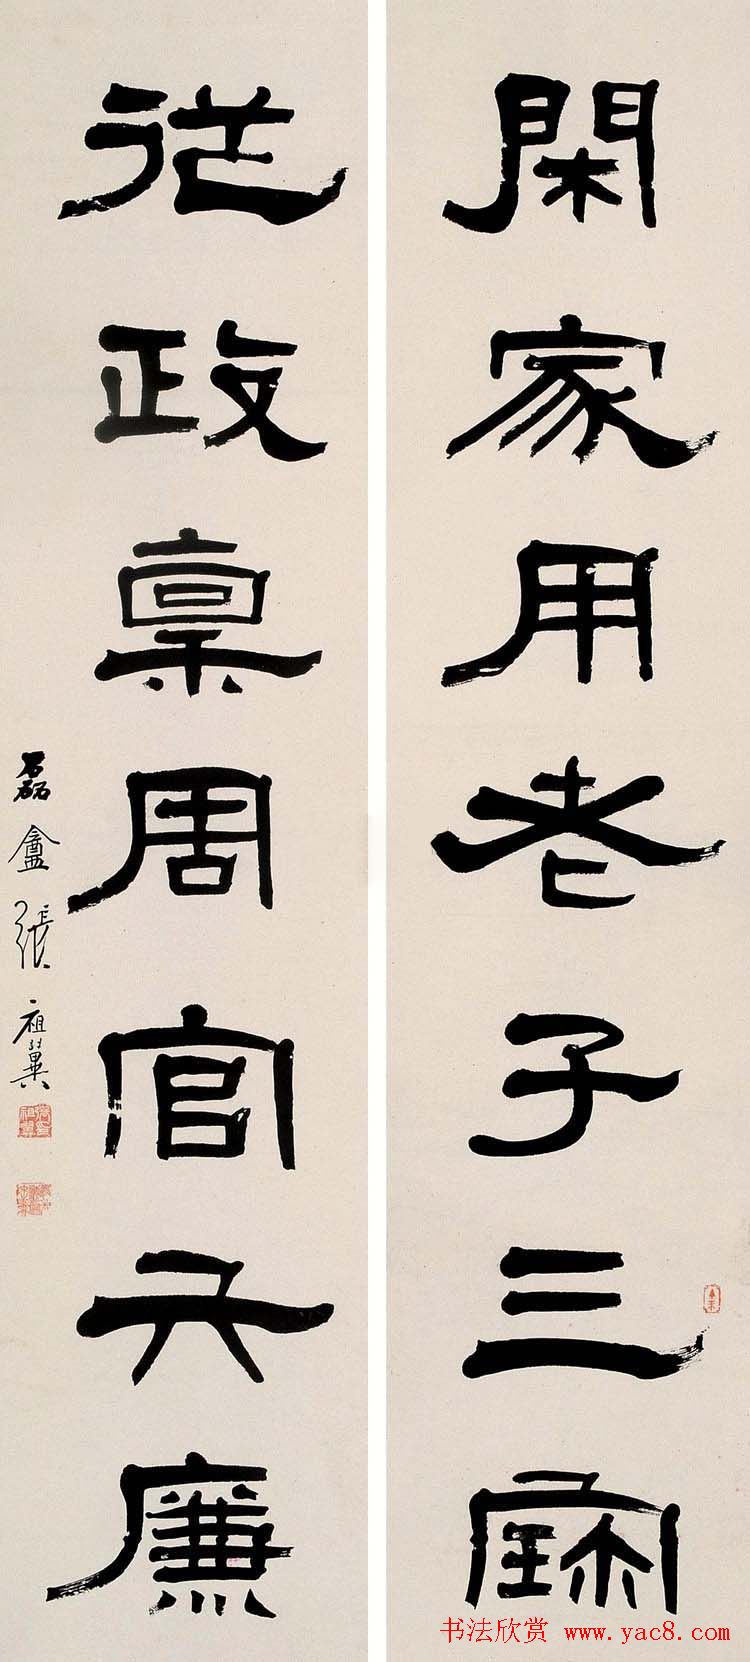 閑家用老子三寳
從政稟周官六廉
磊盦張祖翼
书法欣赏 www.yac8.com